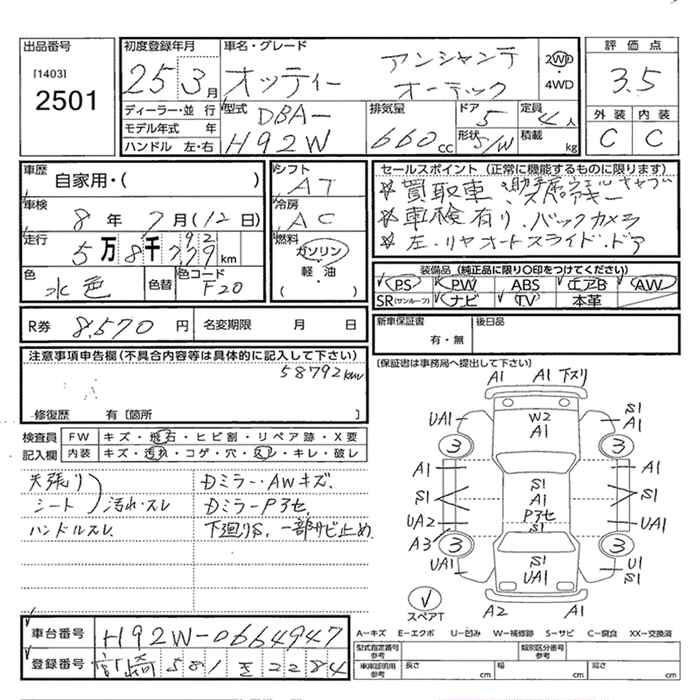 出品番号
[1403]
2501
初度登録年月
25 3月
車名・グレード
アンシャンテ
オッティー オーテック
2WD
4WD
評価点
3.5
外装 内装
C C
ディーラー・並行
モデル年式 年
ハンドル 左・右
型式
DBA-
H92W
排気量
660cc
ドア
5
形状 S/W
定員
4人
積載
kg
車歴
自家用・( )
車検
8年 7月 (12日)
走行
5万 8千 779 km
92
色
水色
色替
色コード
F20
シフト
AT
冷房
AC
燃料
ガソリン
軽・油
( )
セールスポイント (正常に機能するものに限ります)
買取車
スペアキー
車検有り.バックカメラ
左.リヤオートスライド.ドア
装備品 (純正品に限り○印をつけてください)
PS PW ABS エアB AW
SR(サンルーフ) ナビ TV 本革
R券 8,570円 名変期限 月 日
新車保証書
有・無
後日品
(保証書は事務局へ提出して下さい)
注意事項申告欄(不具合内容等は具体的に記入して下さい)
58792km
修復歴 有〔箇所 〕
検査員 FW キズ・飛石・ヒビ割・リペア跡・X要
記入欄 内装 キズ・汚れ・コゲ・穴・スレ・キレ・破レ
天張り
シート 汚れ・スレ
ハンドルスレ
Dミラー・AWキズ.
DミラーP3セ
下廻りS.一部サビ止め
A1 A1 下スリ
UA1 W2 A1 S1 A1
3 3
A1 S1 A1 P3セ A1
S1 S1
UA2 UA1
A3 3 3
UA1 S1 UA1 U1 S1
スペアT A2 A1
A-キズ E-エクボ U-凹み W-補修跡 S-サビ C-腐食 XX-交換済
車台番号 H92W-0664947
登録番号 宮崎 581 き 2284
型式指定番号 参考
類別区分番号 参考
車庫証明用 参考
長さ cm 幅 cm 高さ cm